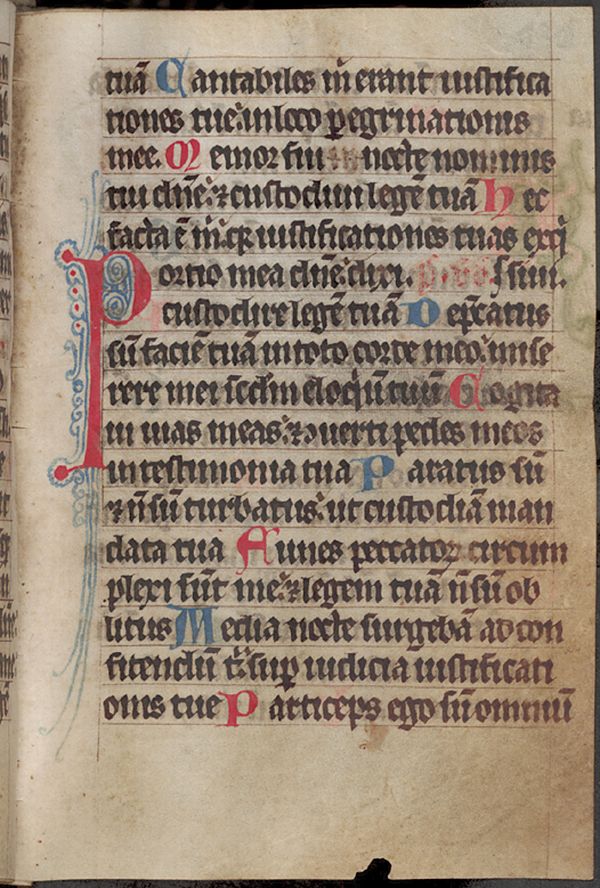 tuā Cantabiles m̄ erant iustifica
tiones tue: in loco p̲egrinationis
mee. Memor fui nocte nominis
tui dn̄e: ⁊ custodiui legē tuā Hec
facta ē m̄: q̄ iustificationes tuas exq̄
Portio mea dn̄e: dixi. ssiui.
custodire legē tuā Dep̄catus
sū faciē tuā in toto corde meo: mise
rere mei sc̄dm eloq̄ū tuū Cogita
ui uias meas: ⁊ ↄuerti pedes meos
in testimonia tua Paratus sū
⁊ n̄ sū turbatus: ut custodiā man
data tua Funes peccatoꝝ circum
plexi sūt me: ⁊ legem tuā n̄ sū ob
litus Media nocte surgebā ad con
fitendū t̄: sup̲ iudicia iustificati
onis tue Particeps ego sū omniū